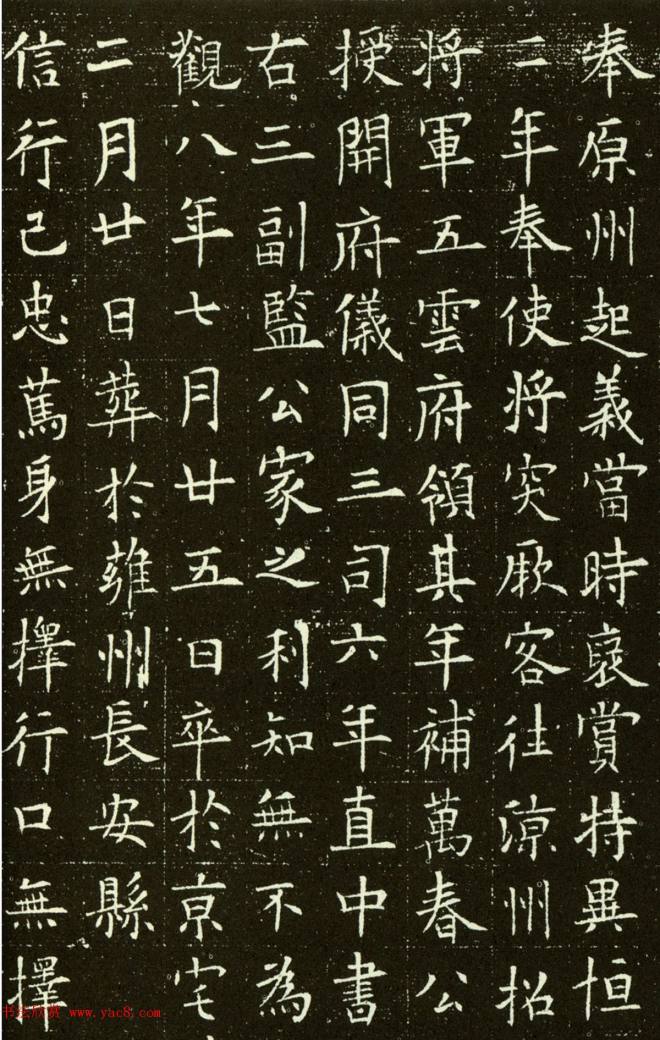 奉原州起義當時裦賞特異恒
二年奉使將突厥客往涼州招
将軍五雲府領其年補萬春公
授開府儀同三司六年直中書
右三副監公家之利知無不為
觀八年七月廿五日卒於京宅
二月廿日葬於雍州長安縣
信行己忠萬身無擇行口無擇
书法欣赏 www.yac8.com